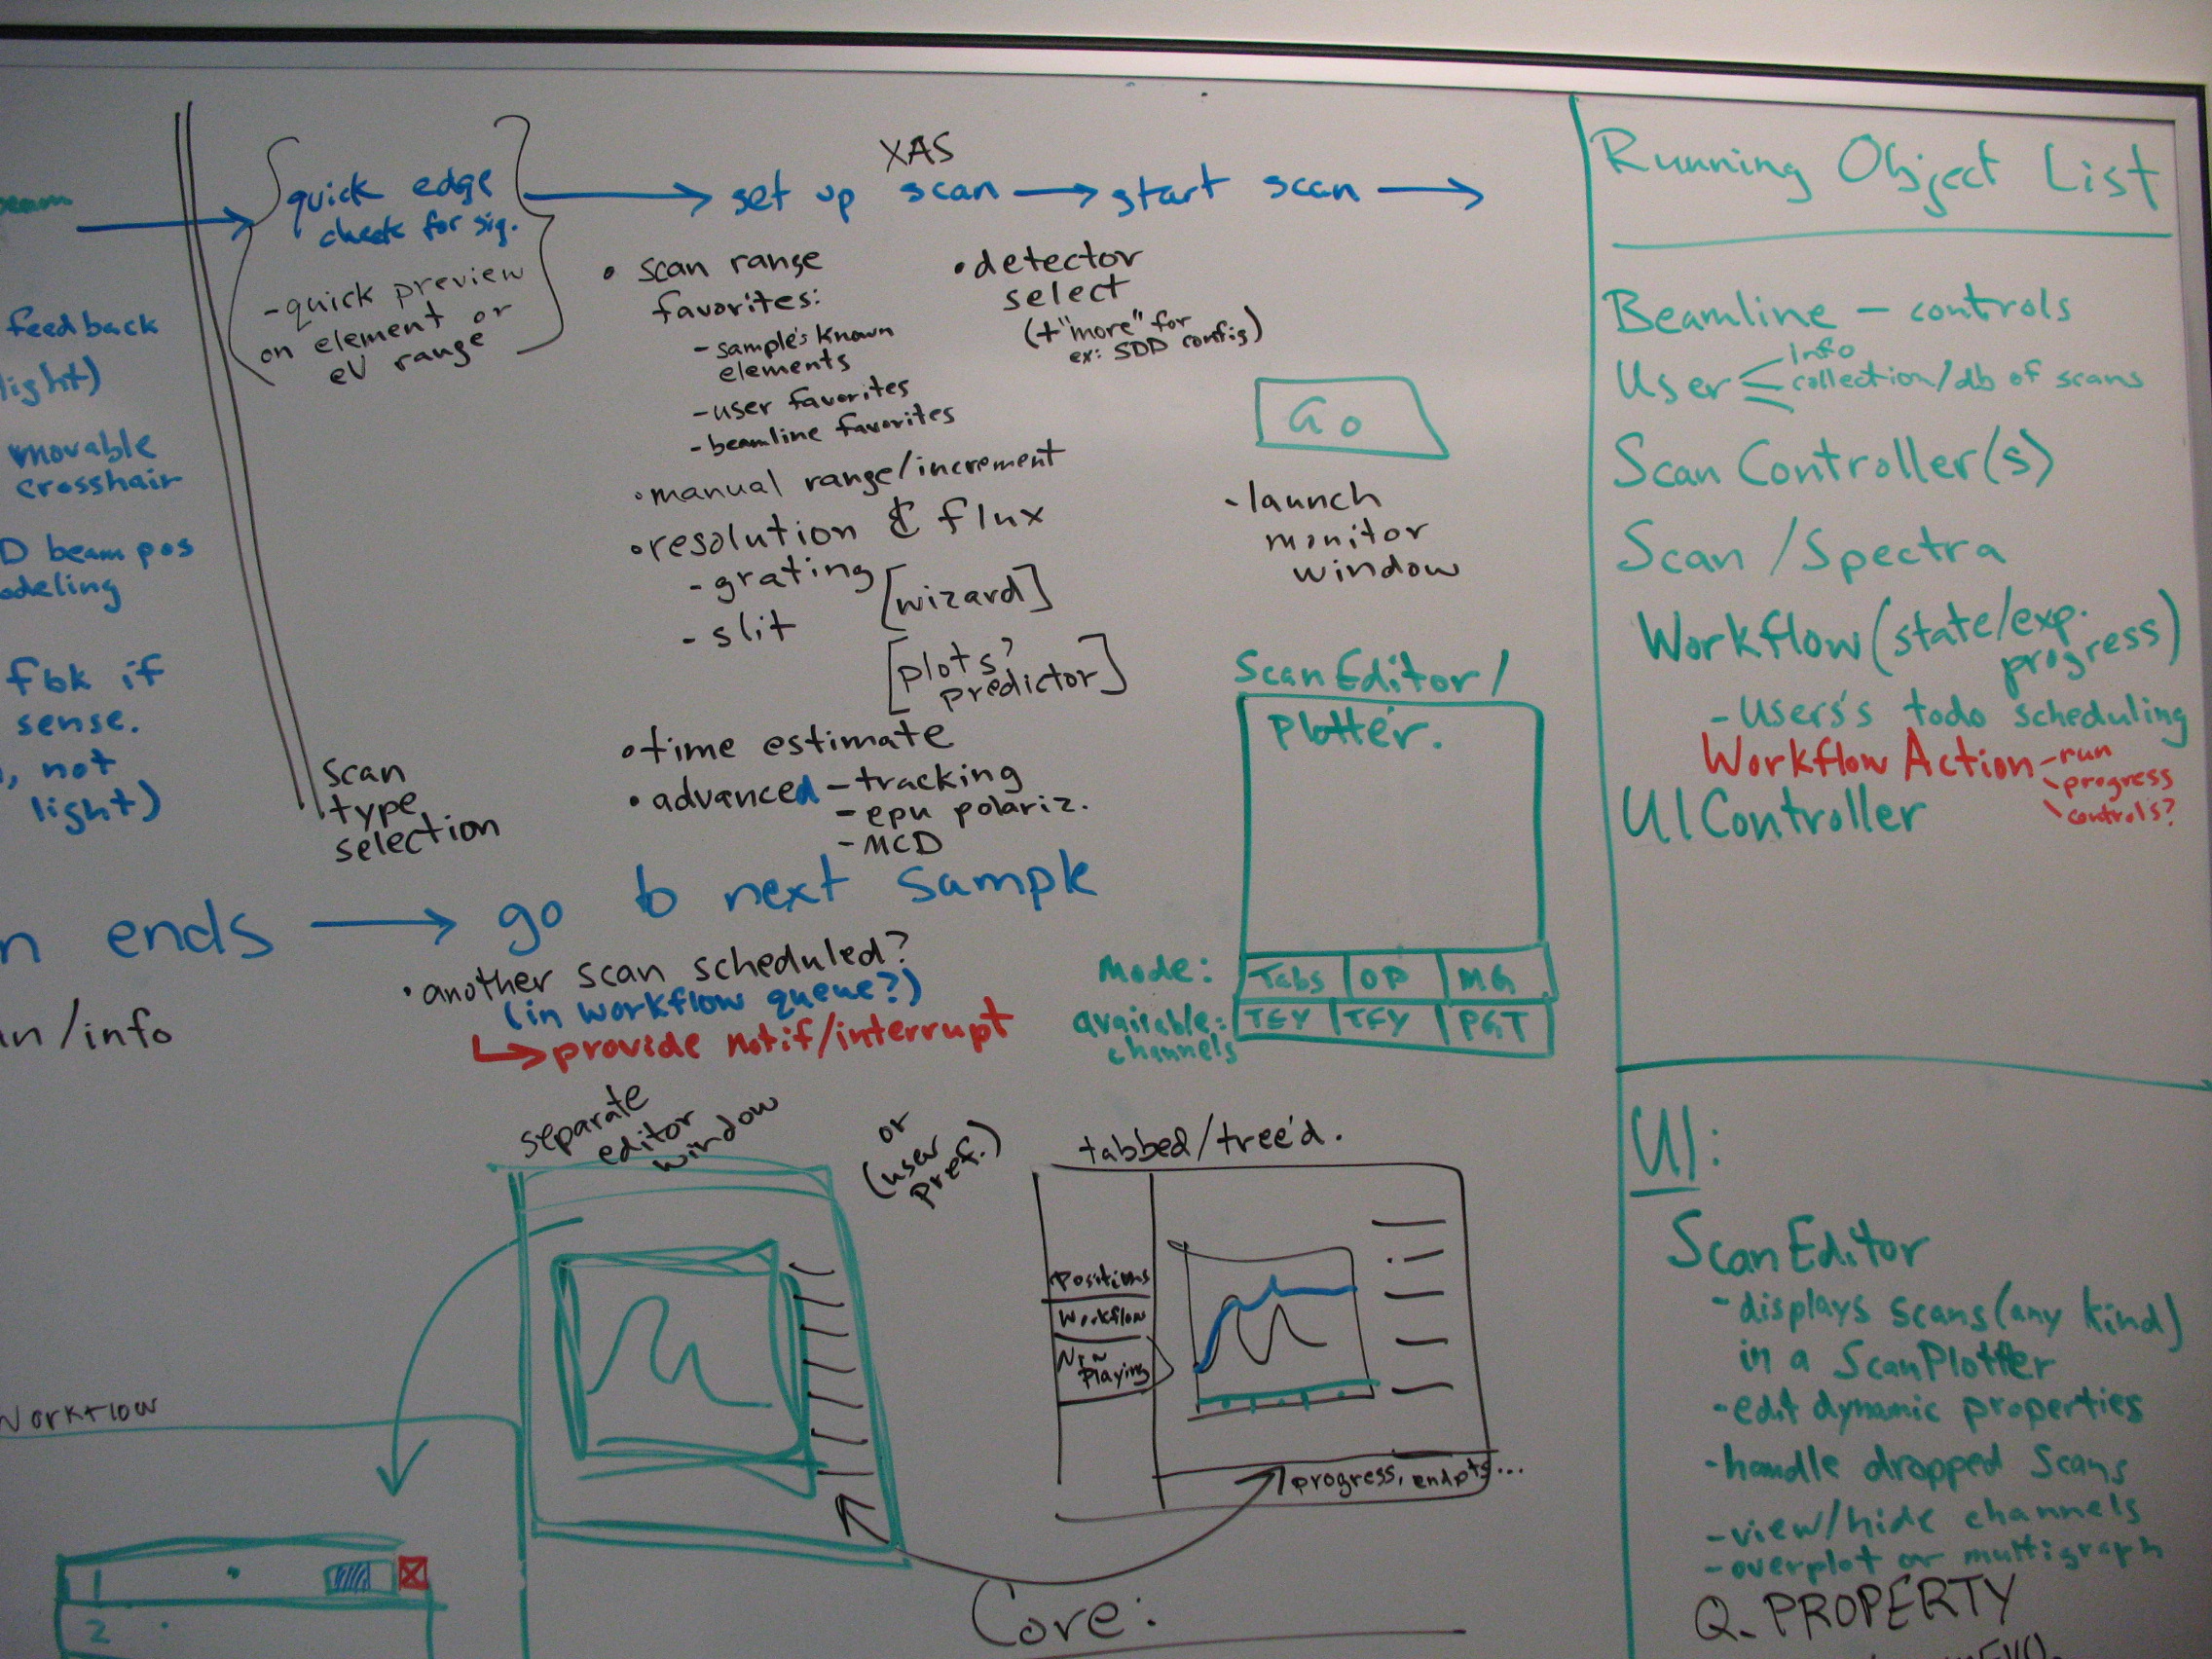 beam
feedback
light)
movable
crosshair
D beam pos
odeling
fbk if
sense.
, not
light)
quick edge
check for sig.
-quick preview
on element or
eV range
scan
type
selection
XAS
set up scan → start scan →
• scan range
favorites:
- sample's known
elements
-user favorites
-beamline favorites
• manual range/increment
• resolution & flux
- grating
- slit
[wizard]
[plots?
predictor]
• time estimate
• advanced - tracking
- epu polariz.
- MCD
• detector
select
(+"more" for
ex: SDD config)
Go
- launch
monitor
window
ScanEditor /
Plotter.
Mode: Tabs OP MG
available: TEY TFY PGT
channels
n ends → go to next sample
• another scan scheduled?
(in workflow queue?)
↳ provide notif/interrupt
n/info
separate
editor
window
or
(user
pref.)
tabbed/tree'd.
Positions
Workflow
Now
Playing
progress, endpts...
Workflow
1
2
Core:
Running Object List
Beamline - controls
User
Info
collection/db of scans
Scan Controller(s)
Scan / Spectra
Workflow (state/exp.
progress)
- Users's todo scheduling
Workflow Action - run
progress
controls?
UI Controller
UI:
ScanEditor
- displays scans (any kind)
in a ScanPlotter
- edit dynamic properties
- handle dropped scans
- view/hide channels
- overplot or multigraph
Q_PROPERTY